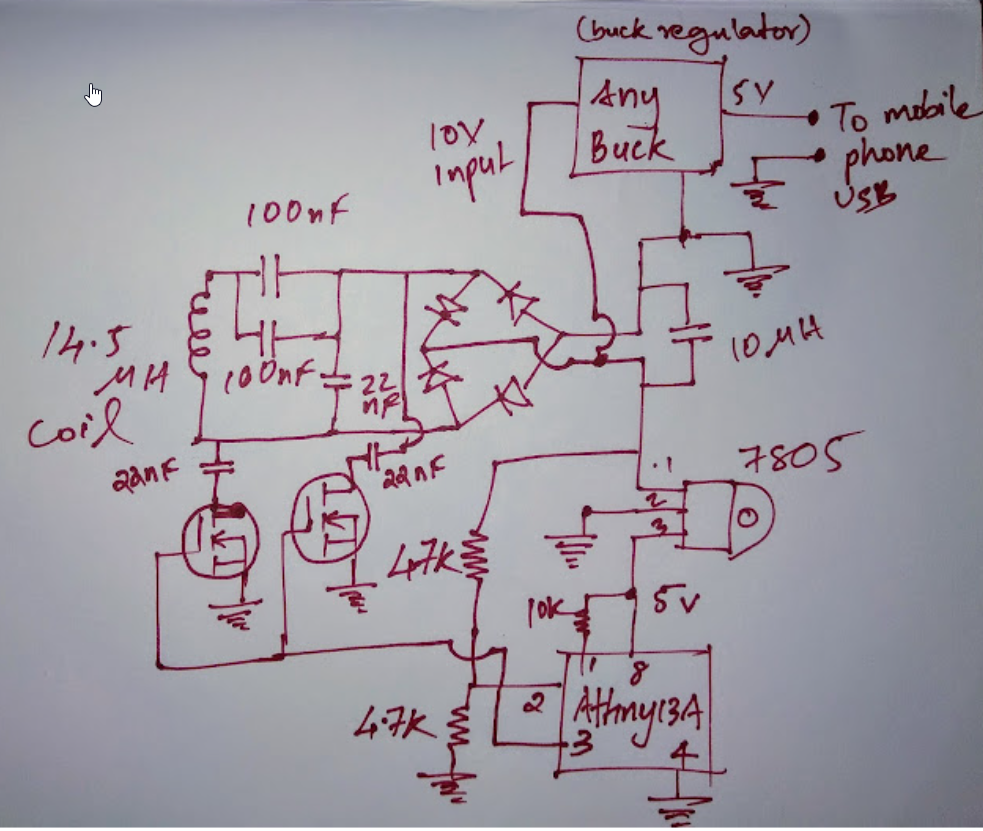 (buck regulator)
Any
Buck
5V
To mobile
phone
USB
10V
input
100nF
14.5
μH
coil
100nF
22
nF
10μH
22nF
22nF
.1
2
3
7805
47K
10K
5V
1
8
2
Attiny13A
3
4
4.7K